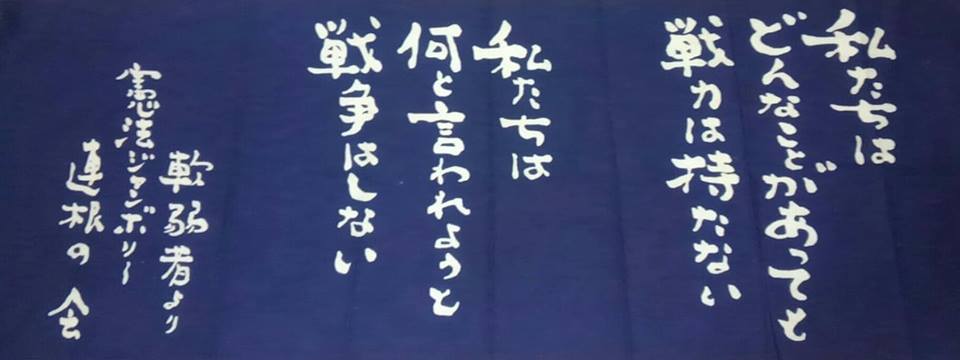 私たちは
どんなことがあっても
戦力は持たない
私たちは
何と言われようと
戦争はしない
軟弱者より
憲法ジャンボリー
連根の会